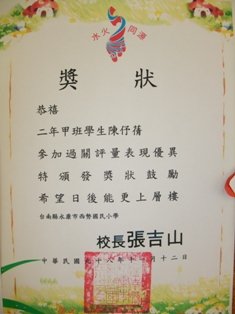 水火同源
獎狀
恭禧
二年甲班學生陳伃蒨
參加過關評量表現優異
特頒發獎狀鼓勵
希望日後能更上層樓
台南縣永康市西勢國民小學
校長張吉山
中華民國九十八年十一月十二日